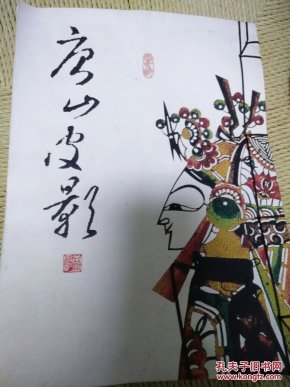 唐山皮影
孔夫子旧书网
www.kongfz.com